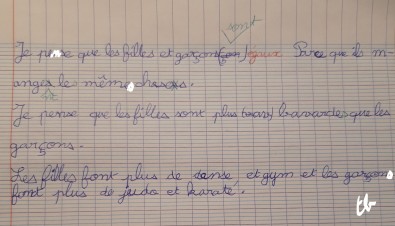 sont
Je pense que les filles et garçons égaux Parce que ils m-
angent les même choses.
Je pense que les filles sont plus bavardes que les
garçons.
Les filles font plus de danse et gym et les garçons
font plus de judo et karaté.
tb